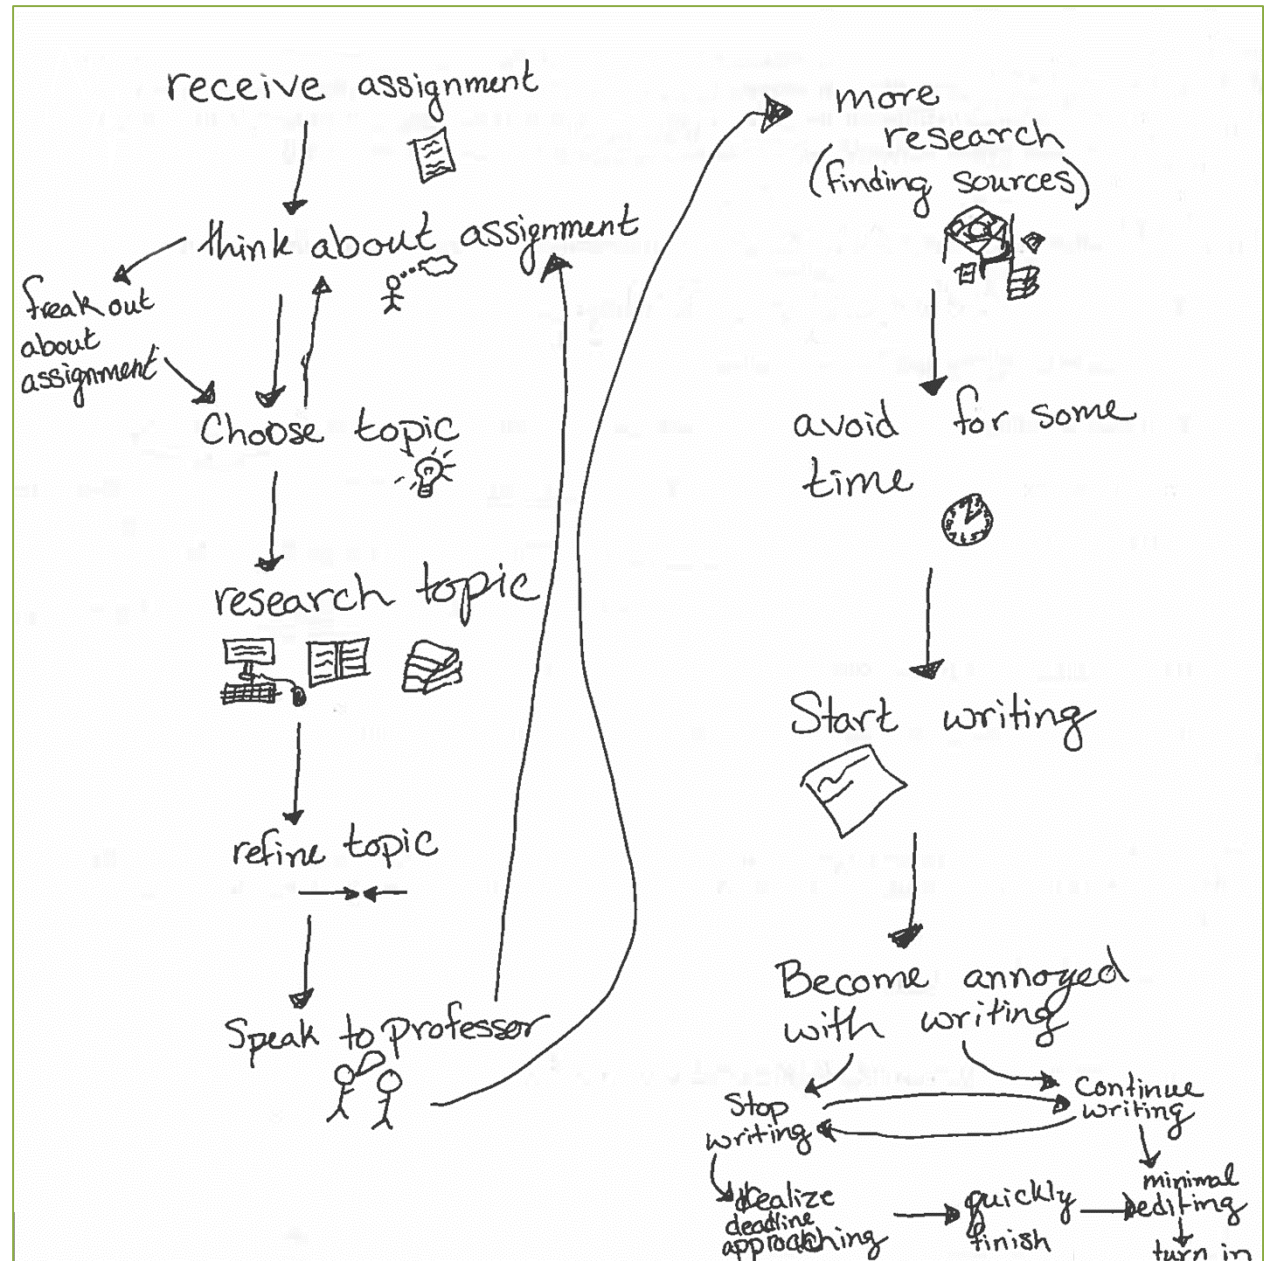 receive assignment
think about assignment
freak out
about
assignment
Choose topic
research topic
refine topic
Speak to professor
more
research
(finding sources)
avoid for some
time
Start writing
Become annoyed
with writing
Stop
writing
continue
writing
Realize
deadline
approaching
quickly
finish
minimal
editing
turn in